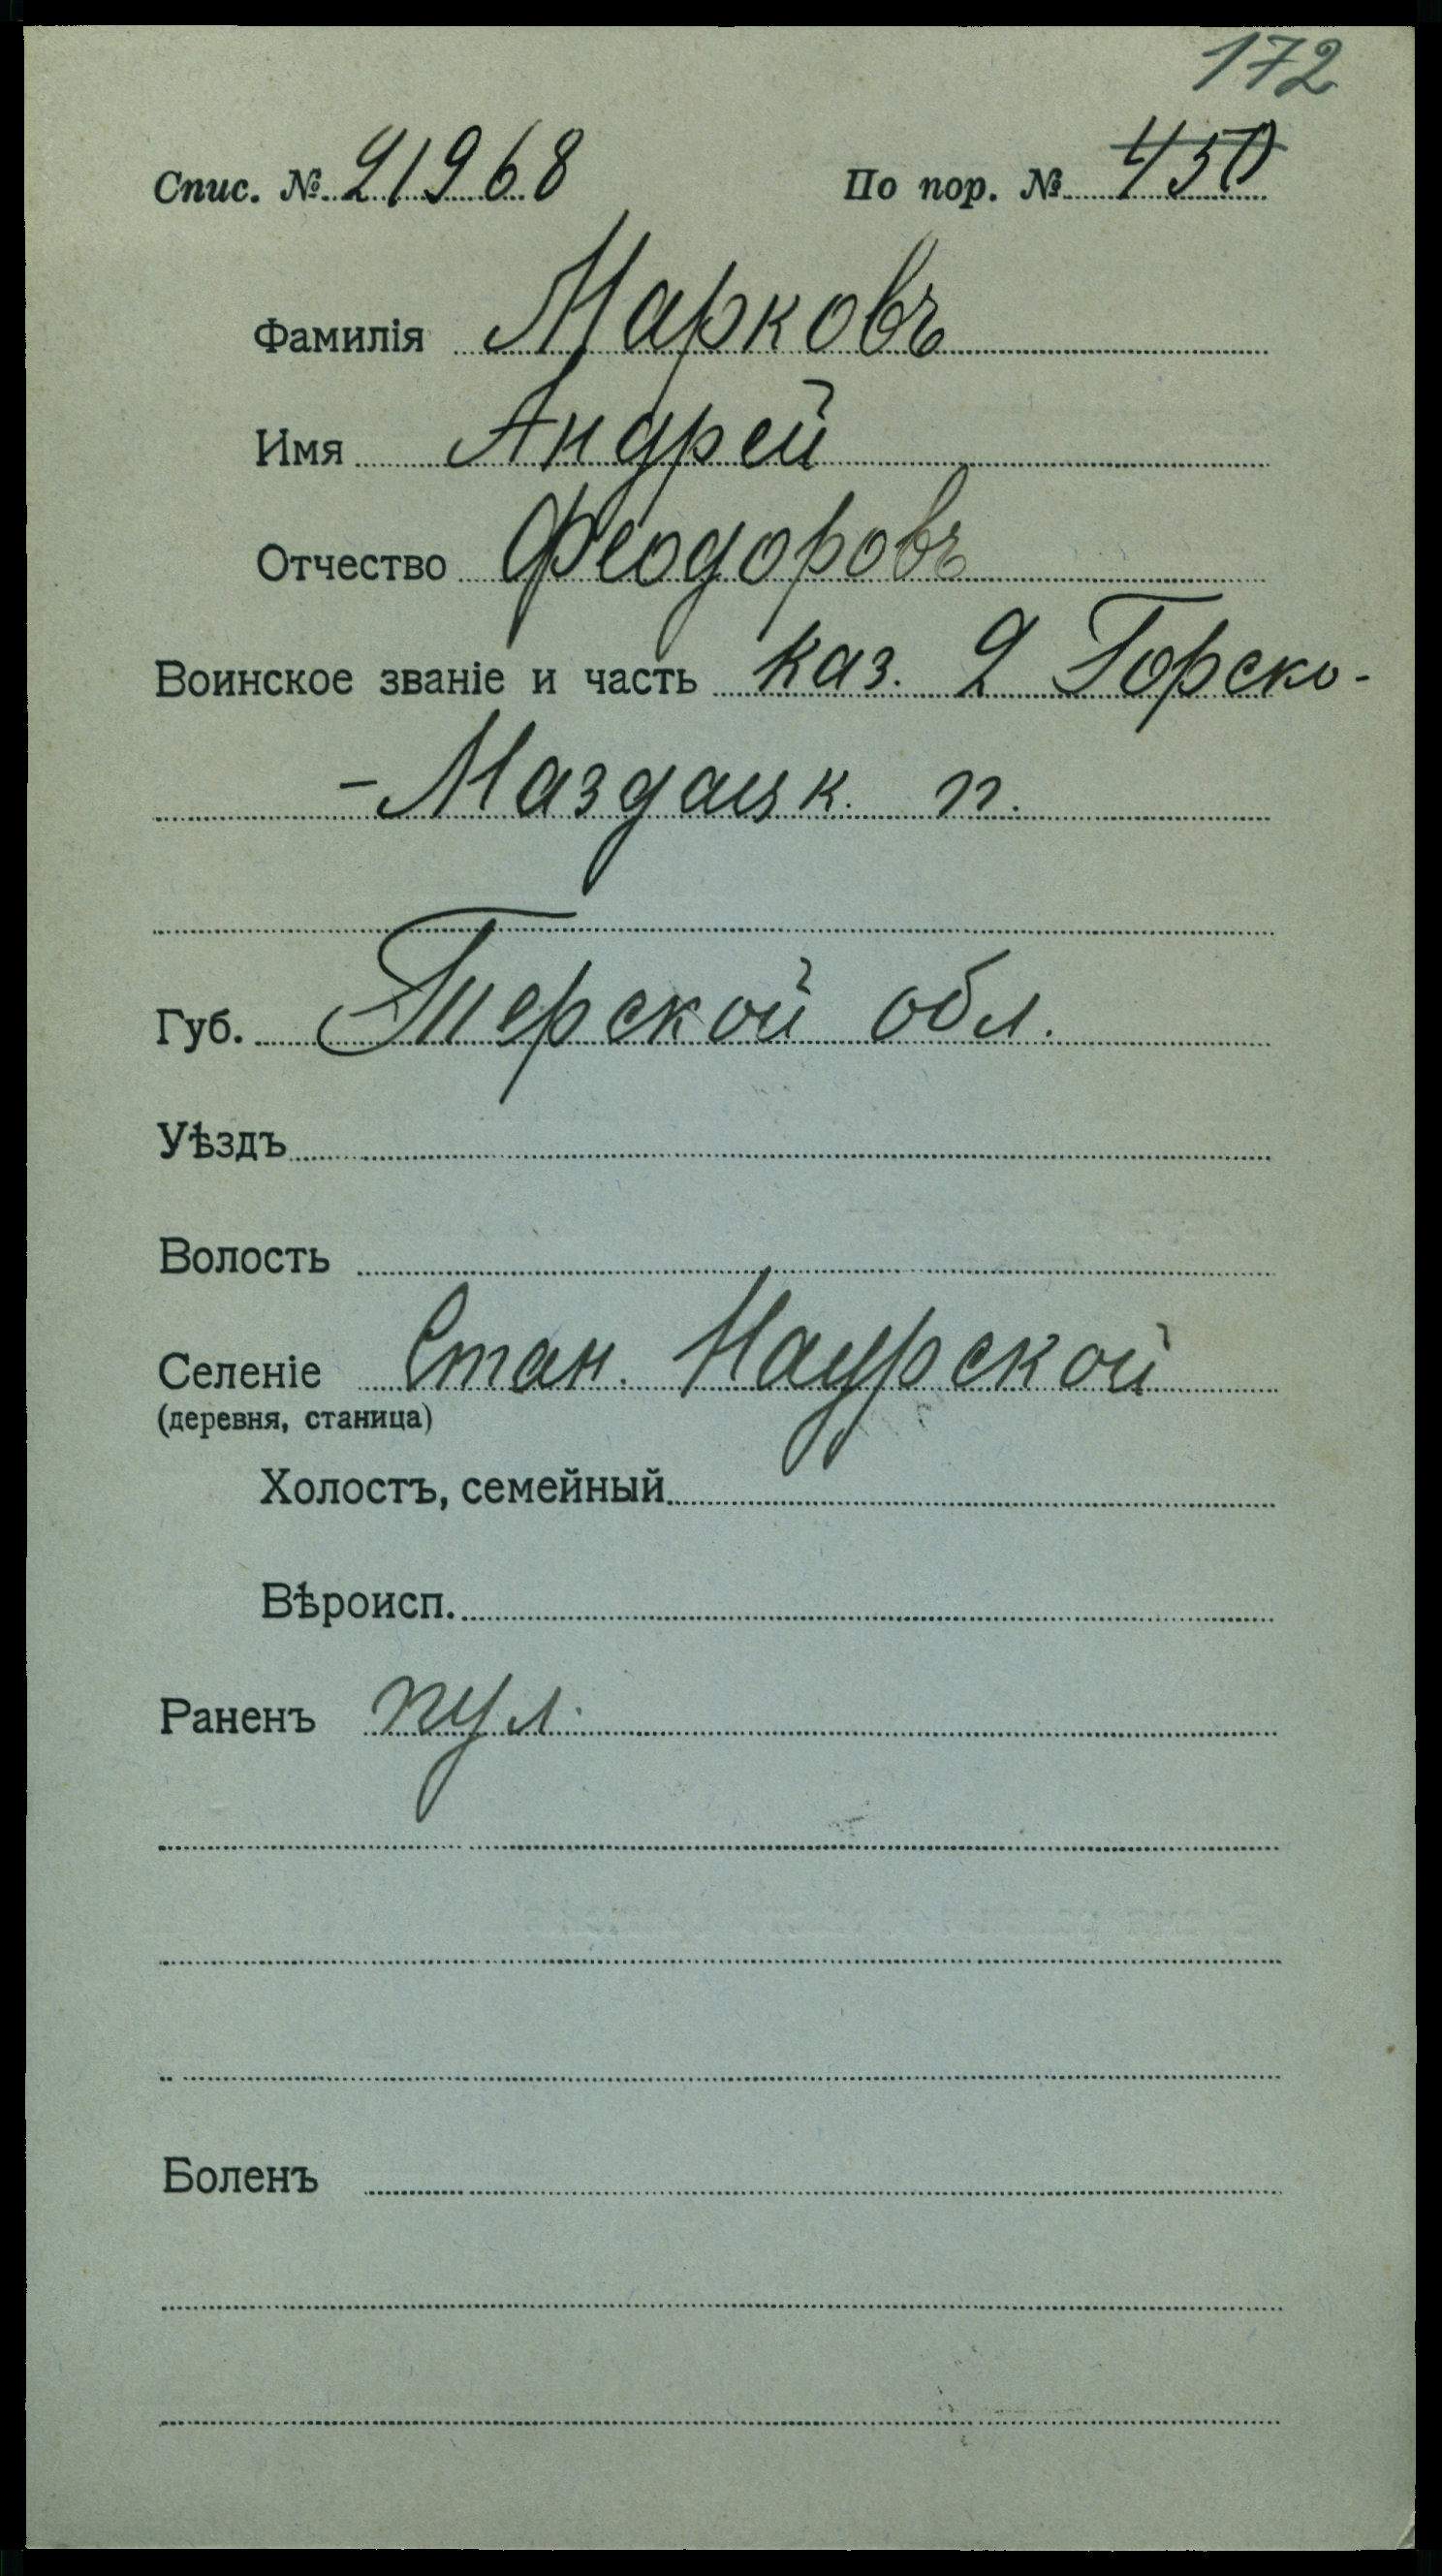 172
Спис. № 21968 По пор. № 450
Фамилія Марковъ
Имя Андрей
Отчество Феодоровъ
Воинское званіе и часть каз. 2 Горско-
-Маздацк. п.
Губ. Терской обл.
Уѣздъ
Волость
Селеніе Стан. Наурской
(деревня, станица)
Холостъ, семейный
Вѣроисп.
Раненъ пул.
Боленъ